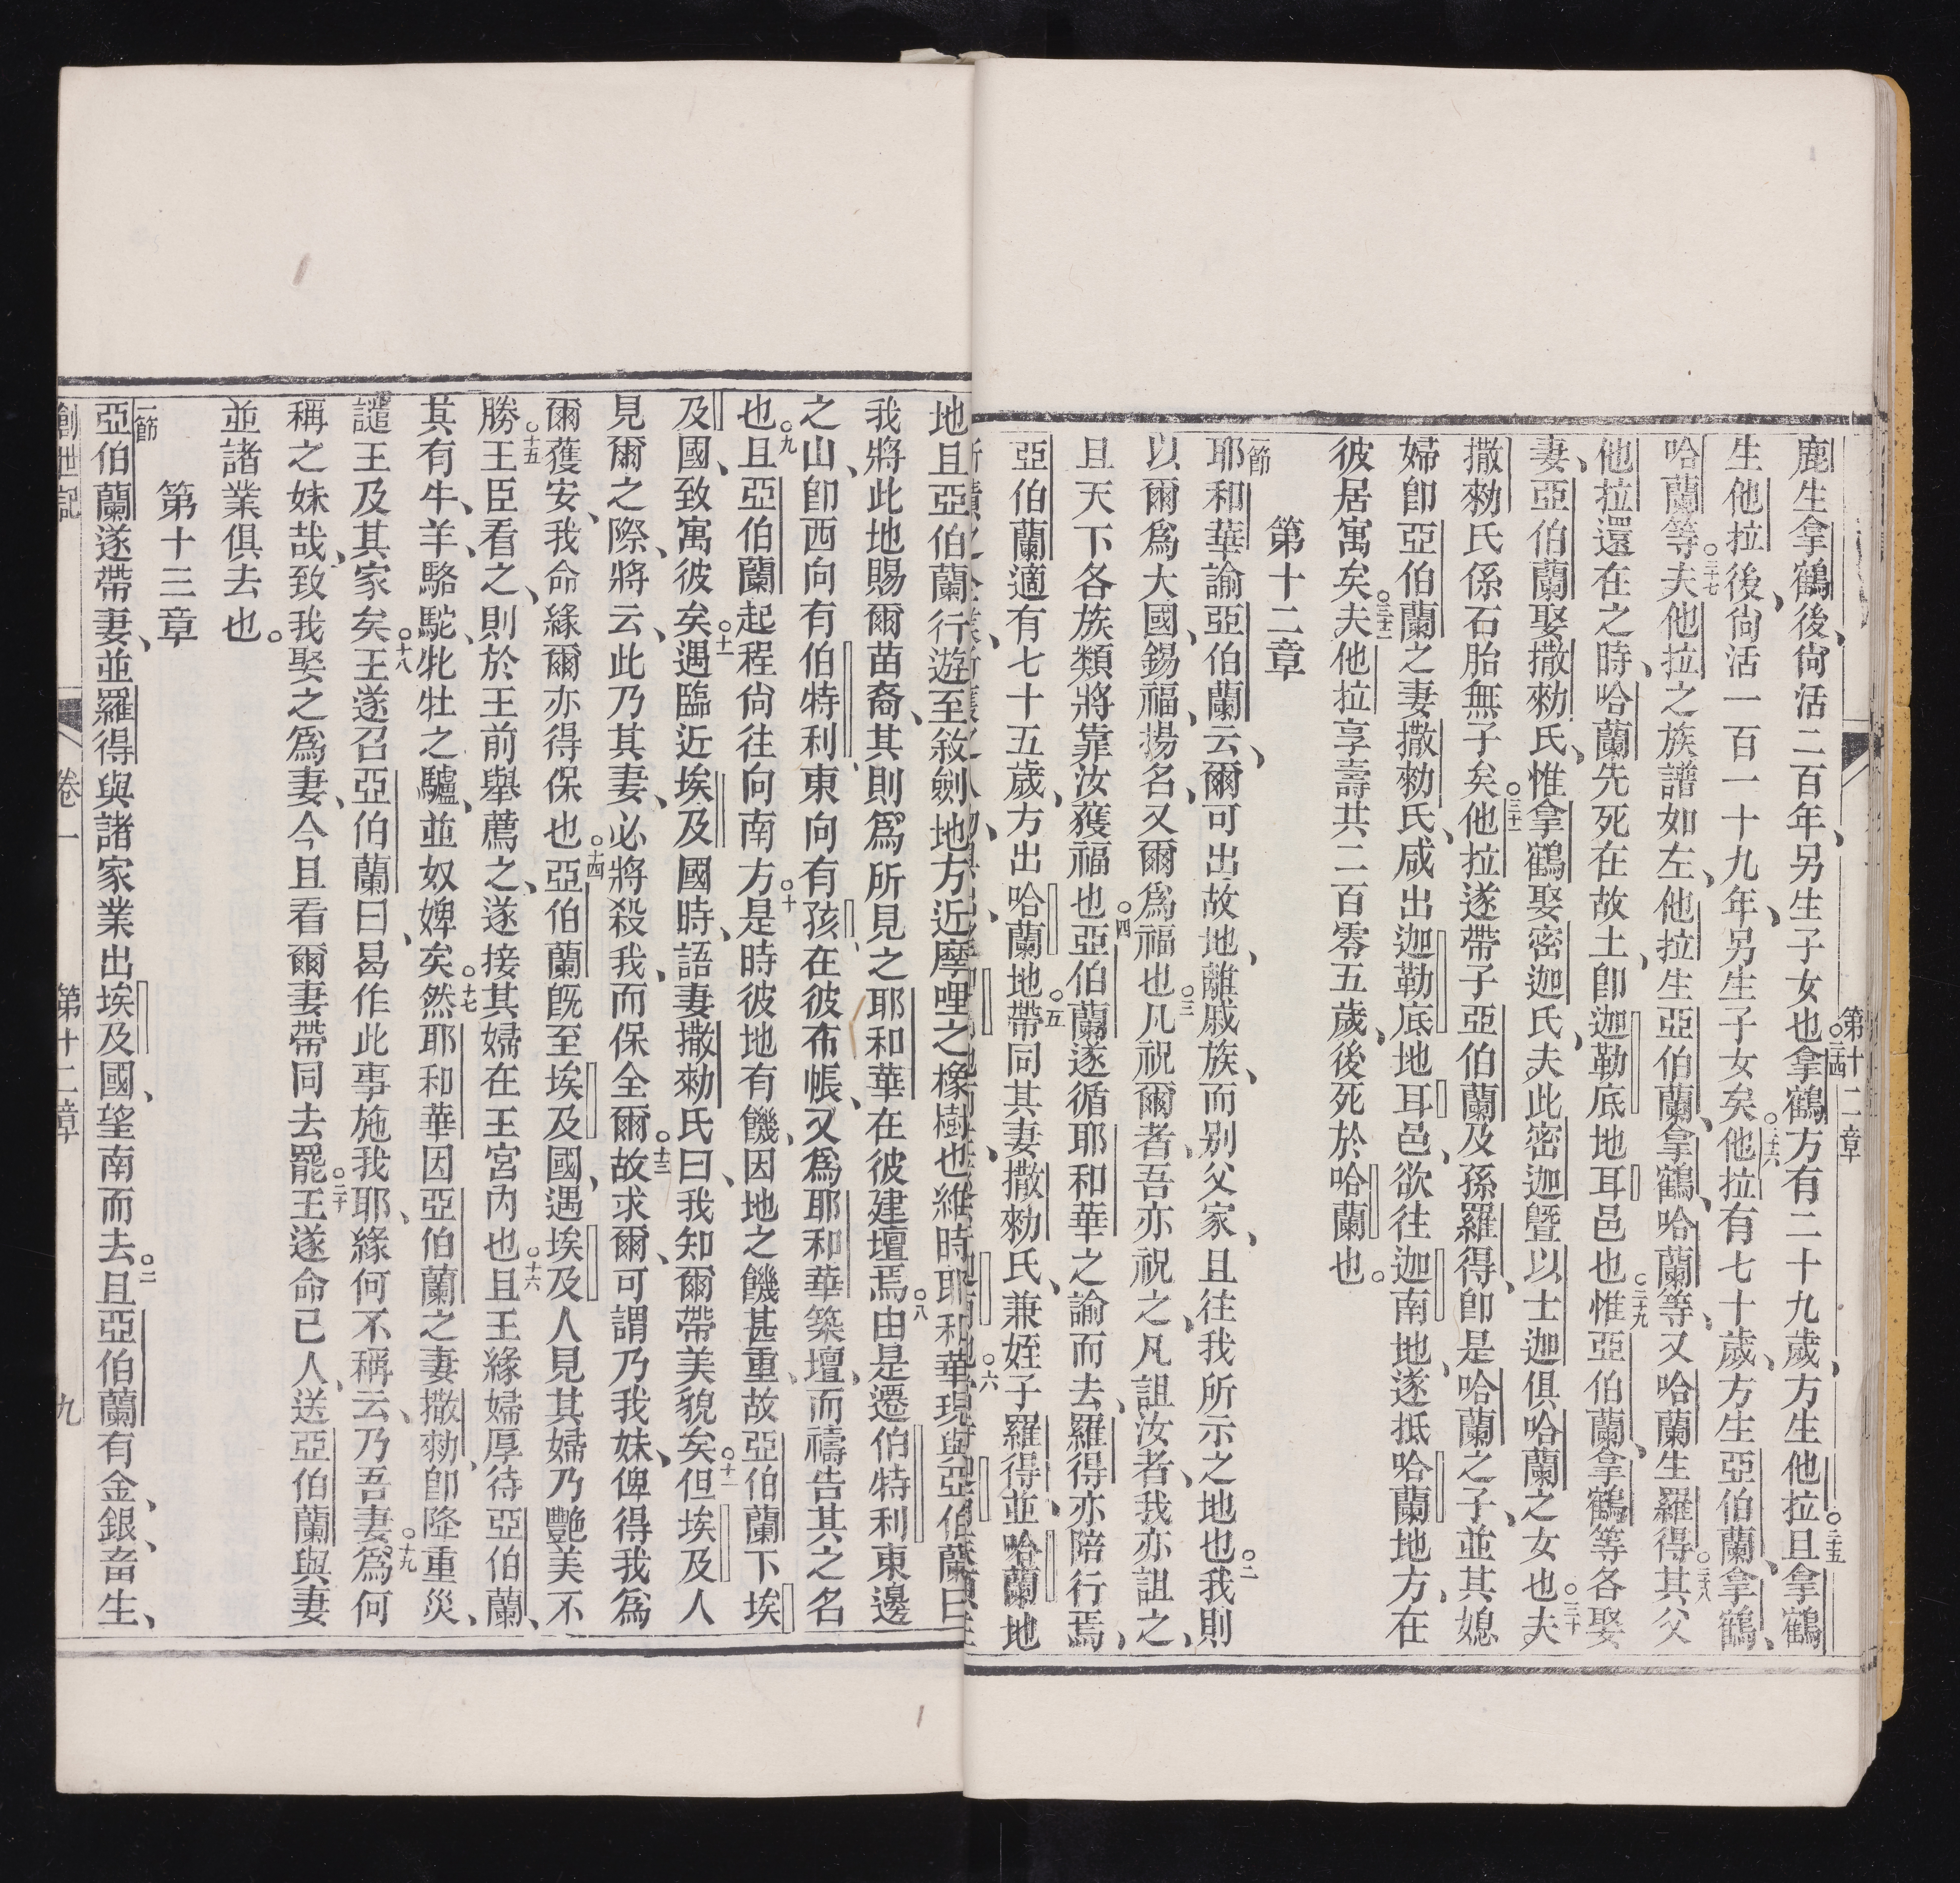 第十二章
鹿生拿鶴後、尙活二百年、另生子女也○二四拿鶴方有二十九歲、方生他拉○二五且拿鶴
生他拉後、尙活一百一十九年、另生子女矣○二六他拉有七十歲、方生亞伯蘭、拿鶴、
哈蘭等○二七夫他拉之族譜如左、他拉生亞伯蘭、拿鶴、哈蘭等、又哈蘭生羅得○二八其父
他拉還在之時、哈蘭先死在故土、卽迦勒底地耳邑也○二九惟亞伯蘭、拿鶴等各娶
妻、亞伯蘭娶撒勑氏、惟拿鶴娶密迦氏、夫此密迦暨以士迦俱哈蘭之女也○三十夫
撒勑氏係石胎無子矣○三十一他拉遂帶子亞伯蘭及孫羅得、卽是哈蘭之子、並其媳
婦卽亞伯蘭之妻撒勑氏、咸出迦勒底地耳邑、欲往迦南地、遂抵哈蘭地方、在
彼居寓矣○三十二夫他拉享壽共二百零五歲、後死於哈蘭也。
第十二章
一節耶和華諭亞伯蘭云、爾可出故地、離戚族、而别父家、且往我所示之地也○二我則
以爾爲大國、錫福、揚名、又爾爲福也○三凡祝爾者、吾亦祝之、凡詛汝者、我亦詛之、
且天下各族類將靠汝獲福也○四亞伯蘭遂循耶和華之諭而去、羅得亦陪行焉、
亞伯蘭適有七十五歲、方出哈蘭地○五帶同其妻撒勑氏、兼姪子羅得、並哈蘭地
地且亞伯蘭行遊至敘劍地方近摩哩之橡樹也、維時耶和華現與亞伯蘭曰
我將此地賜爾苗裔、其則爲所見之耶和華在彼建壇焉○八由是遷伯特利東邊
之山、卽西向有伯特利、東向有孩、在彼布帳、又爲耶和華築壇、而禱告其之名
也○九且亞伯蘭起程尙往向南方○十是時彼地有饑、因地之饑甚重、故亞伯蘭下埃
及國、致寓彼矣○十一遇臨近埃及國時、語妻撒勑氏曰、我知爾帶美貌矣○十二但埃及人
見爾之際、將云、此乃其妻、必將殺我、而保全爾○十三故求爾、可謂乃我妹、俾得我爲
爾獲安、我命緣爾亦得保也○十四亞伯蘭旣至埃及國、遇埃及人見其婦乃艷美不
勝○十五王臣看之、則於王前舉薦之、遂接其婦在王宮內也○十六且王緣婦厚待亞伯蘭、
其有牛、羊、駱駝、牝牡之驢、並奴婢矣○十七然耶和華因亞伯蘭之妻撒勑、卽降重災、
譴王及其家矣○十八王遂召亞伯蘭曰、曷作此事施我耶、緣何不稱云、乃吾妻○十九爲何
稱之妹哉、致我娶之爲妻、今且看爾妻帶同去罷○二十王遂命己人、送亞伯蘭與妻
並諸業俱去也。
第十三章
一節亞伯蘭遂帶妻、並羅得與諸家業出埃及國、望南而去○二且亞伯蘭有金、銀、畜生、
創世記 卷一 第十二章 九